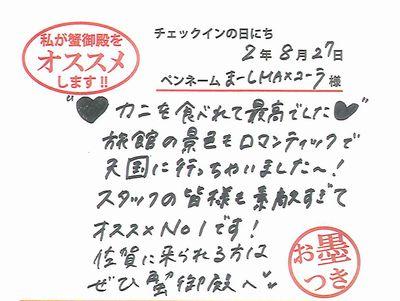 私が蟹御殿を
オススメ
します!!
チェックインの日にち
2年8月27日
ペンネーム まーしMAX2ーラ 様
カニを食べれて最高でした
旅館の景色もロマンティックで
天国に行っちゃいました〜!
スタッフの皆様も素敵すぎて
オススメNo1です!
佐賀に来られる方は
ぜひ蟹御殿へ
お墨つき